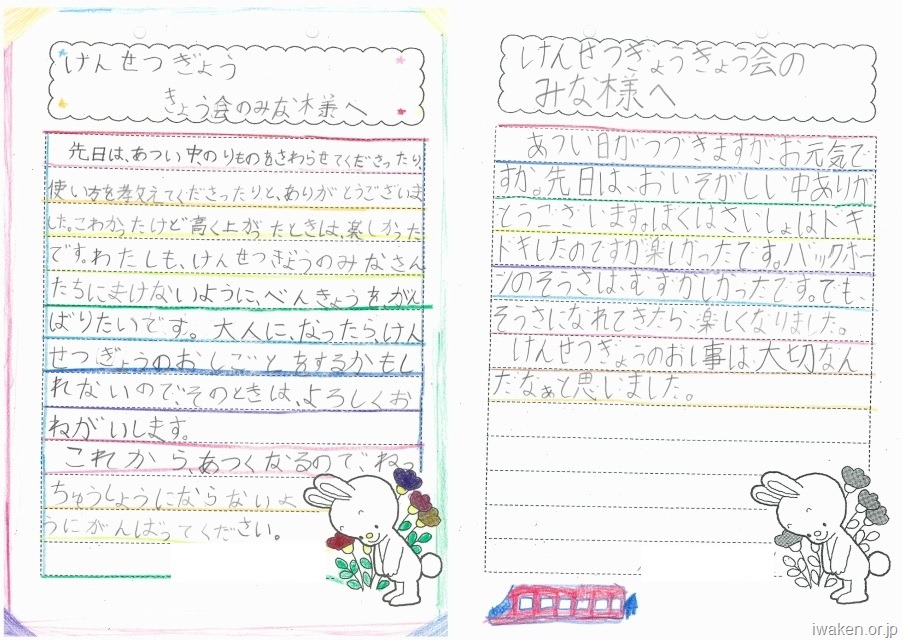 けんせつぎょう
きょう会のみな様へ
先日は、あつい中のりものをさわらせてくださったり
使い方を教えてくださったりと、ありがとうございま
した。こわかったけど高く上がったときは、楽しかった
です。わたしも、けんせつぎょうのみなさん
たちにまけないように、べんきょうを、がん
ばりたいです。大人に、なったら、けん
せつぎょうのおしごとをするかもし
れないので、そのときは、よろしくお
ねがいします。
これから、あつくなるので、ねっ
ちゅうしょうにならないよ
うにがんばってください。
けんせつぎょうきょう会の
みな様へ
あつい日がつづきますが、お元気で
すか。先日は、おいそがしい中ありが
とうございます。ぼくはさいしょはドキ
ドキしたのですが楽しかったです。バックホー
ンのそうさは、むずかしかったです。でも、
そうさになれてきたら、楽しくなりました。
けんせつぎょうのお仕事は、大切なん
だなぁと思いました。
iwaken.or.jp